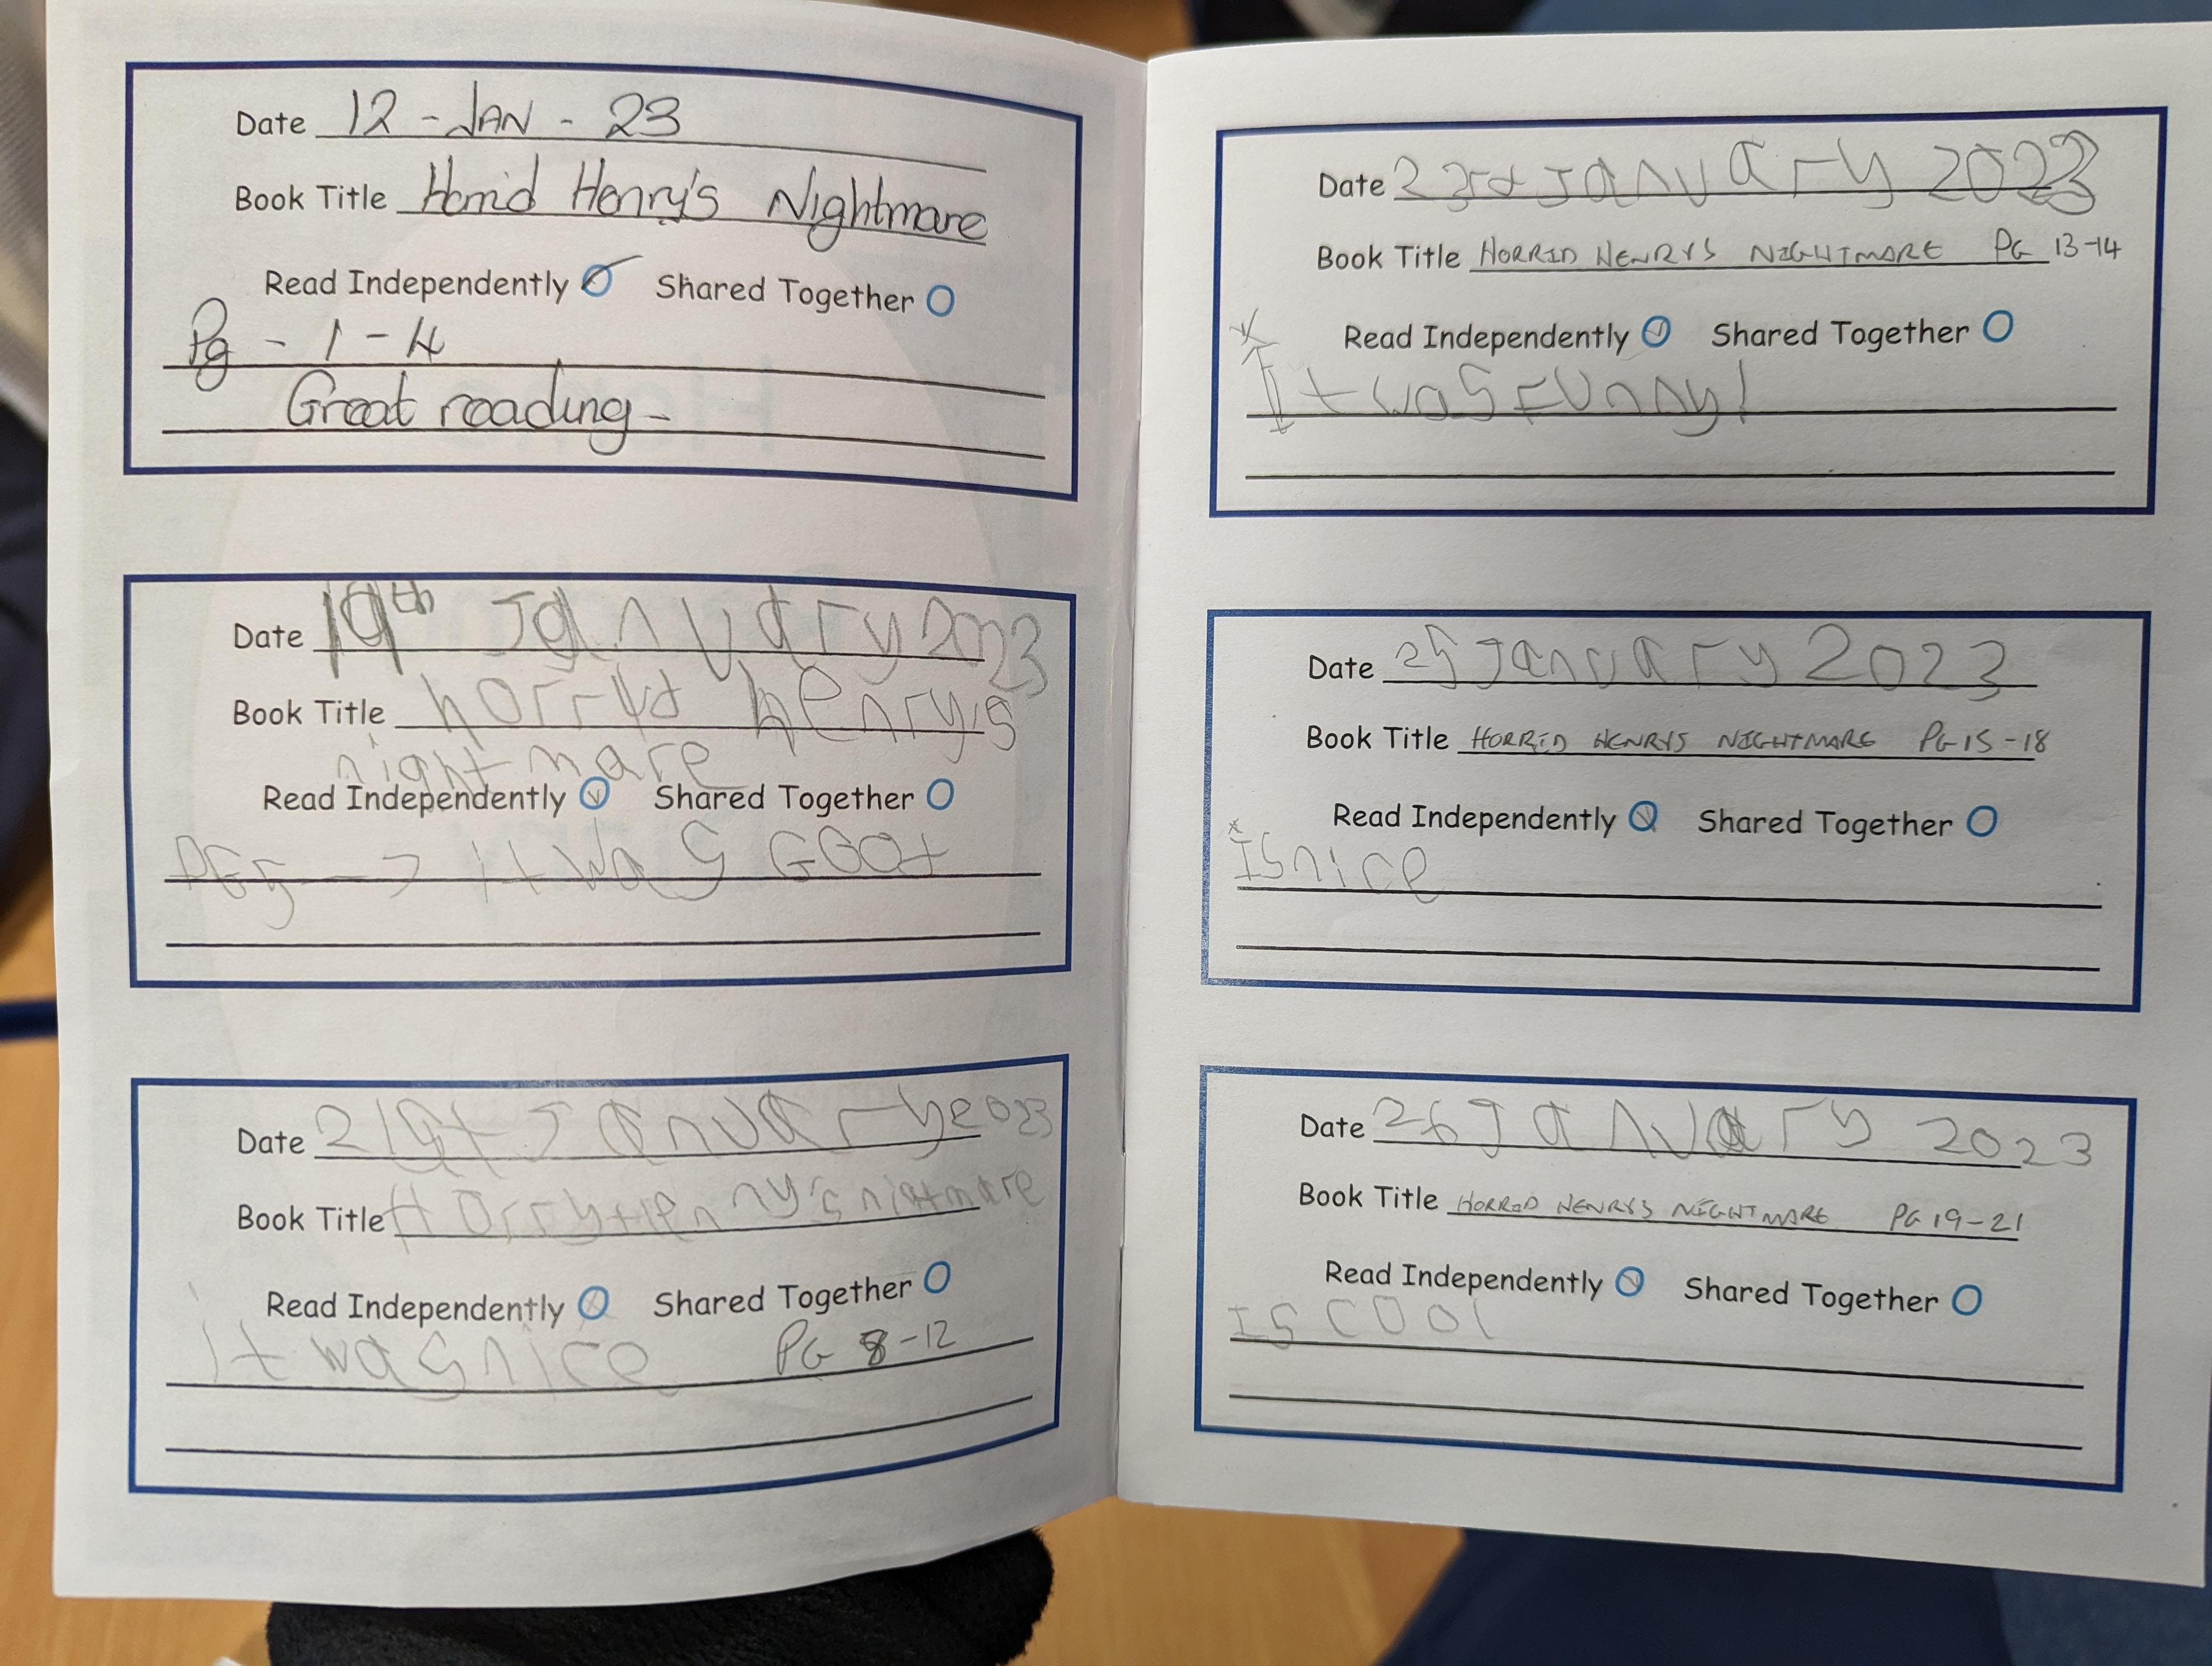 Date 12 - JAN - 23
Book Title Horrid Henry's Nightmare
Read Independently Shared Together
Pg - 1 - 4
Great reading -
Date 19th January 2023
Book Title horryd henry's
nightmare
Read Independently Shared Together
PG 5 → It was GOOt
Date 21st January 2023
Book Title Horry Henry's nightmare
Read Independently Shared Together
It was nice PG 8-12
Date 23rd January 2023
Book Title HORRID HENRYS NIGHTMARE PG 13-14
Read Independently Shared Together
It was funny!
Date 25 January 2023
Book Title HORRID HENRYS NIGHTMARE PG 15-18
Read Independently Shared Together
Is nice
Date 26 January 2023
Book Title HORRID HENRYS NIGHTMARE PG 19-21
Read Independently Shared Together
Is cool